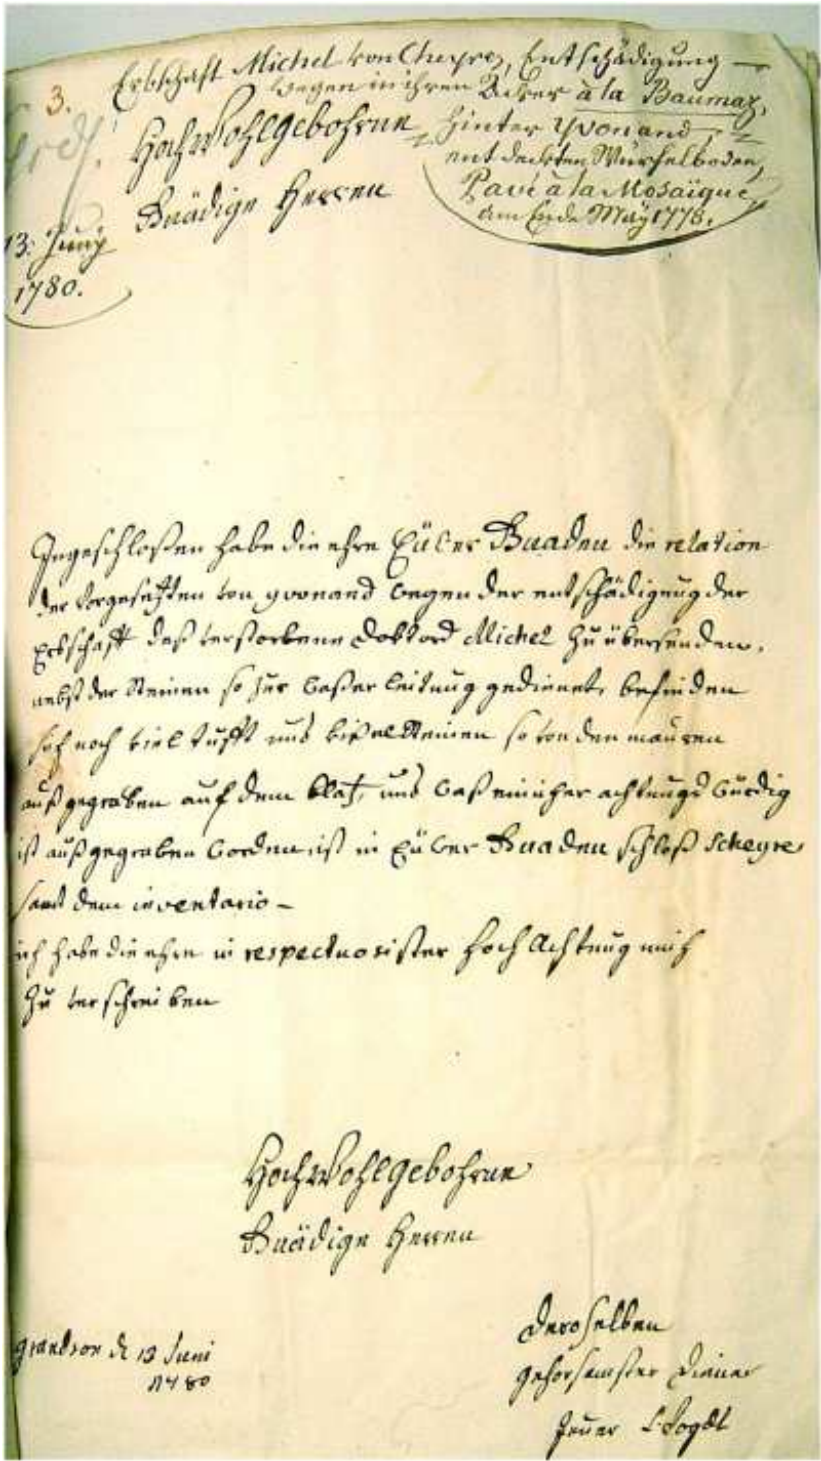 3. Erbschaft Michel von Cheyres, Entschädigung —
wegen in ihren Acker à la Baumaz,
hinter Yvonand
entdeckten Würfelboden,
Pavé à la Mosaïque,
am Ende May 1778.
HochWohlgebohrne
Gnädige Herren
13: Juny
1780.
Ingeschloßen habe die ehre Eüwer Gnaden die relation
der Vorgesetzten von yvonand wegen der entschädigung der
Erbschafft deß verstorbene Doktord Michel zu übersenden,
nebst der Steinen so zur waßerleitung gedienet, befinden
sich noch viel tufft und Steinen so von den mauren
auß gegraben auf dem blatz, und waß einicher achtungs würdig
ist auß gegraben worden, ist in Eüwer Gnaden schloß Scheyre
samt dem inventario –
ich habe die ehre in respectuosister hoch Achtung mich
zu verschreiben
HochWohlgebohrne
Gnädige Herren
grandson d 13 Juni
1780
Deroselben
gehorsamster Diener
Jenner L. Vogdt